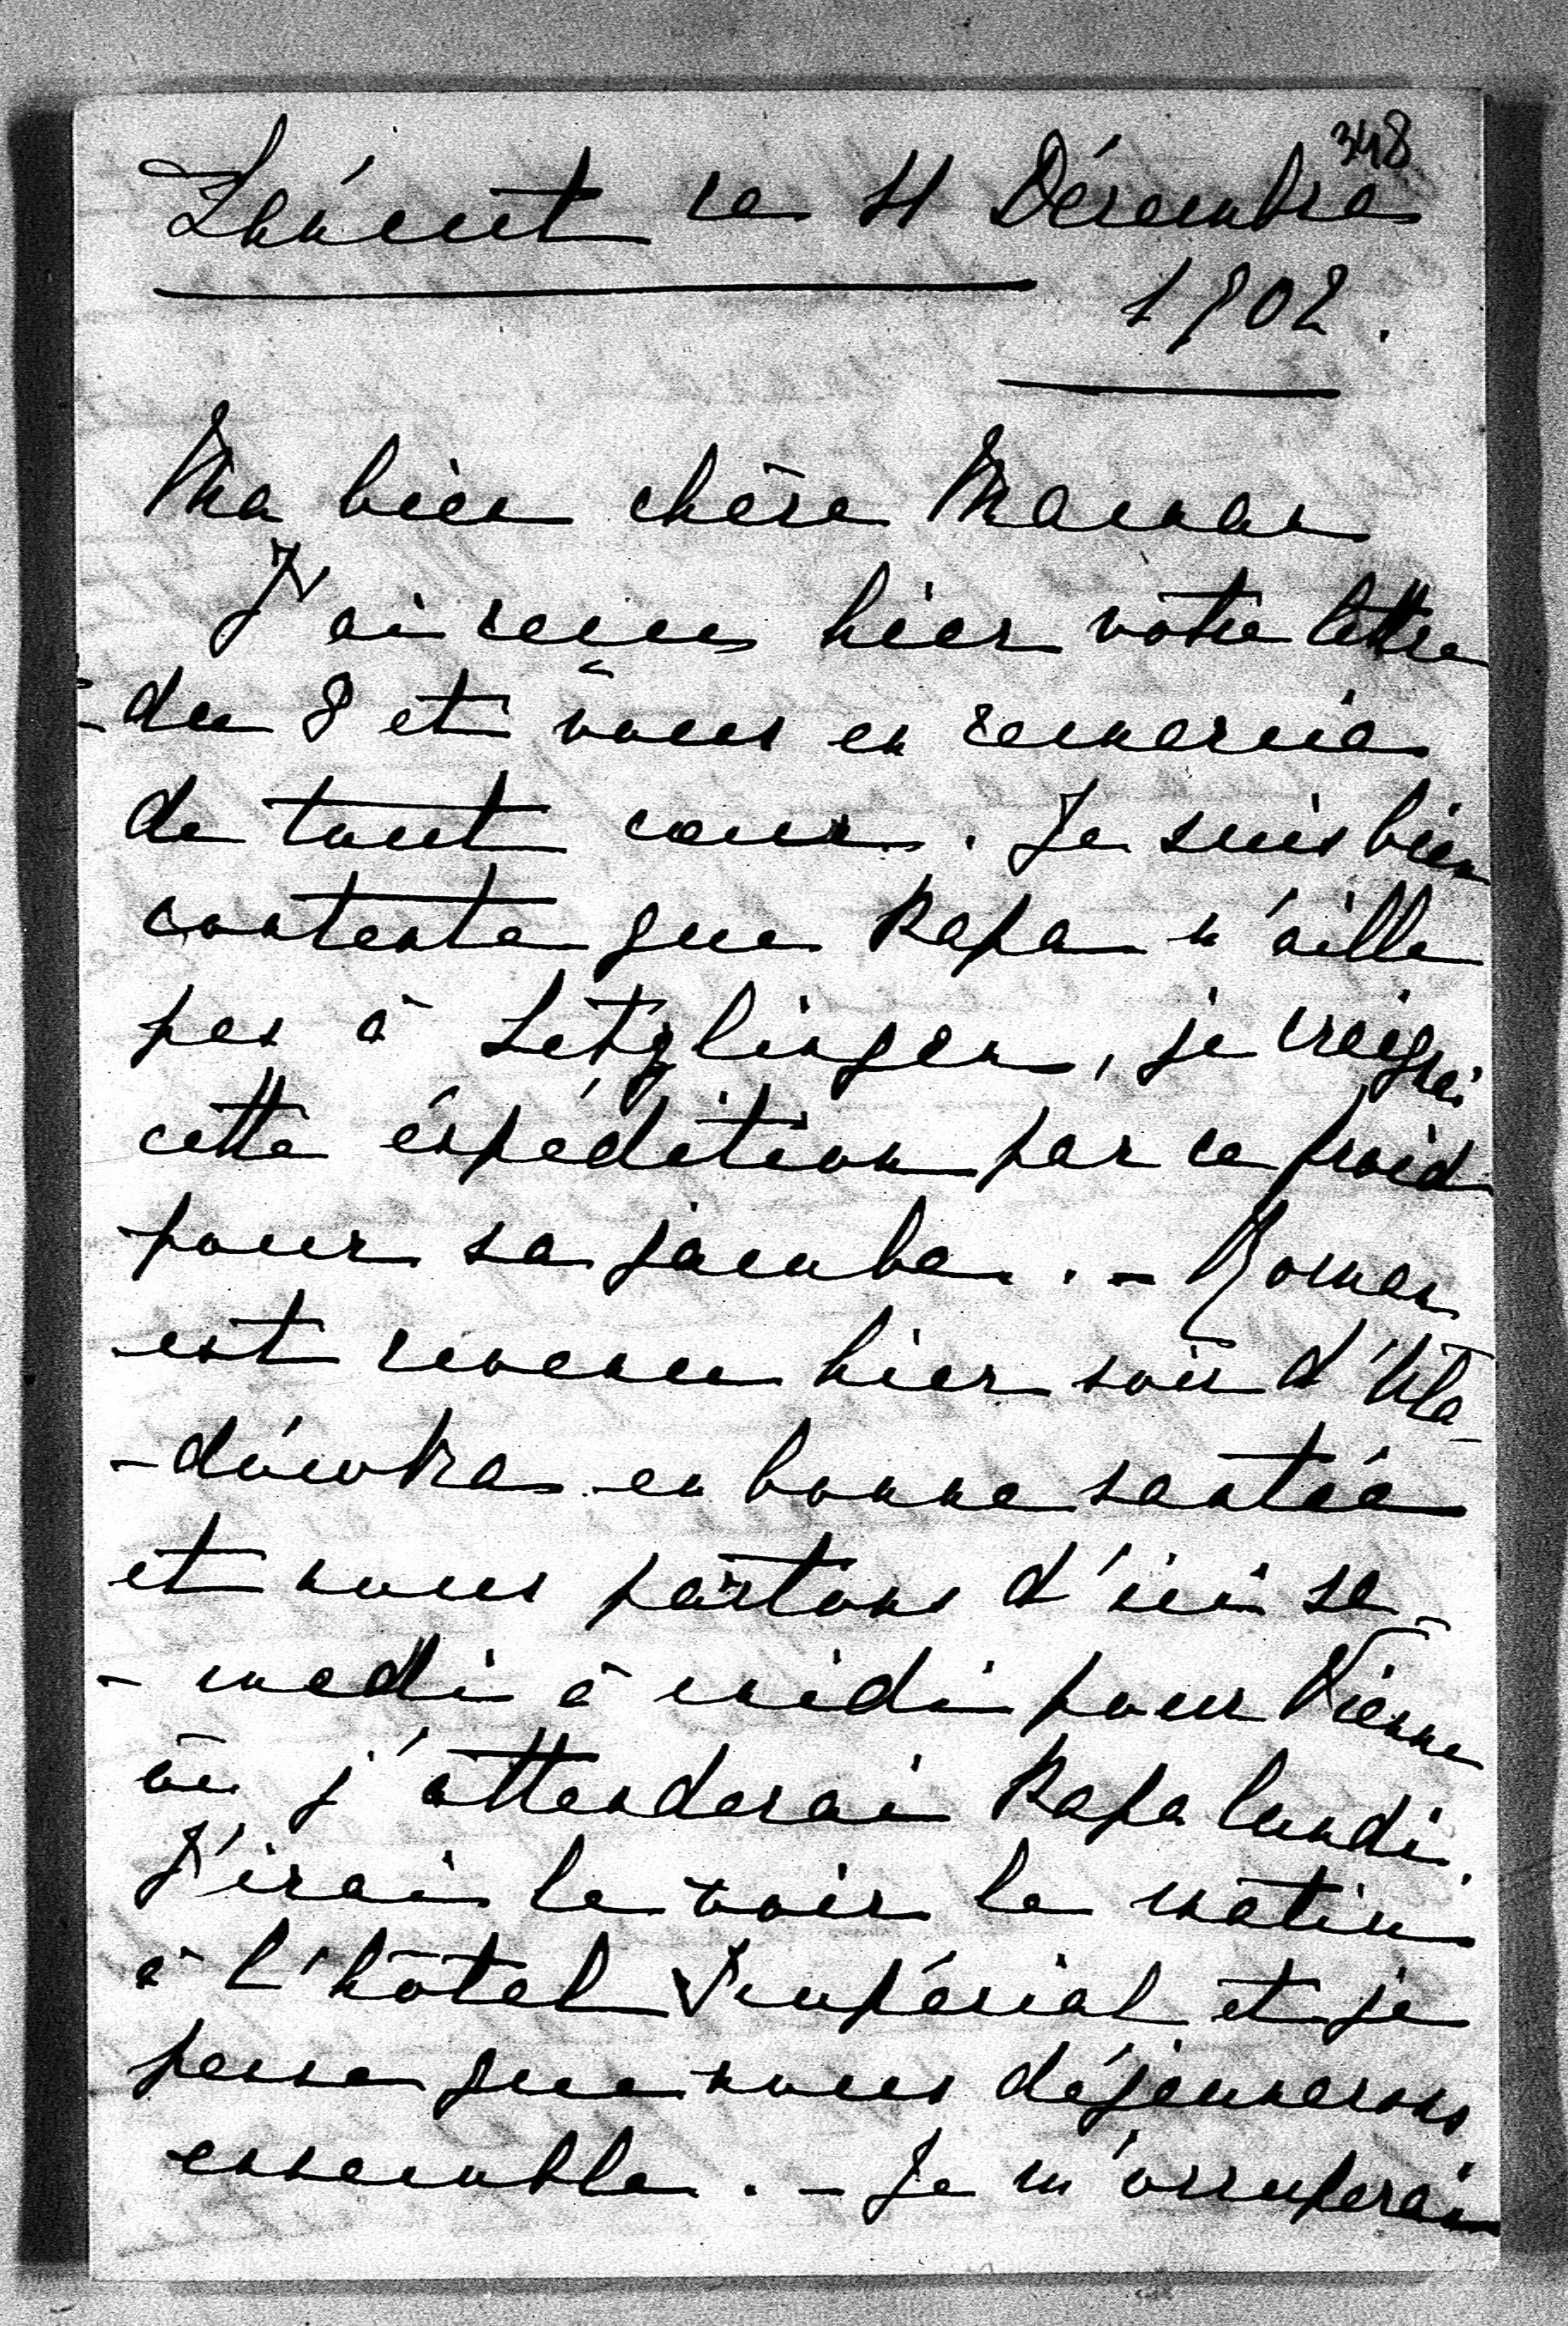 348
Łańcut ce 11 Décembre
1902.
Ma bien chère Maman
J'ai reçue hier votre lettre
du 8 et vous en remercie
de tout cœur. Je suis bien
contente que Papa n'aille
pas à Letzlingen, je craignais
cette éxpédition par ce froid
pour sa jambe. - Roman
est revenu hier soir d'Vla-
-dówka en bonne santée
et nous partons d'ici sa-
-medi à midi pour Vienne
où j'attenderai Papa lundi.
J'irai le voir le matin
à l'hôtel Impérial et je
pense que nous déjeunerons
ensemble. - Je m'occuperai